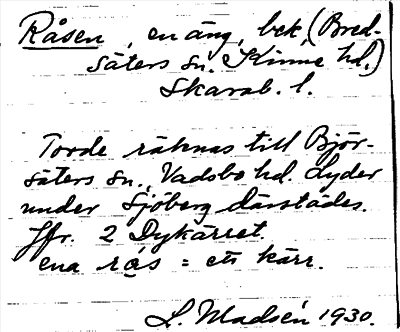 Råsen, en äng, bek, (Bred-
säters sn. Kinne hd.)
Skarab. l.
Torde räknas till Björ-
säters sn., Vadsbo hd. Lyder
under Sjöberg därstädes.
Jfr. 2 Dykärret.
ena rås = ett kärr.
L. Madsén 1930.